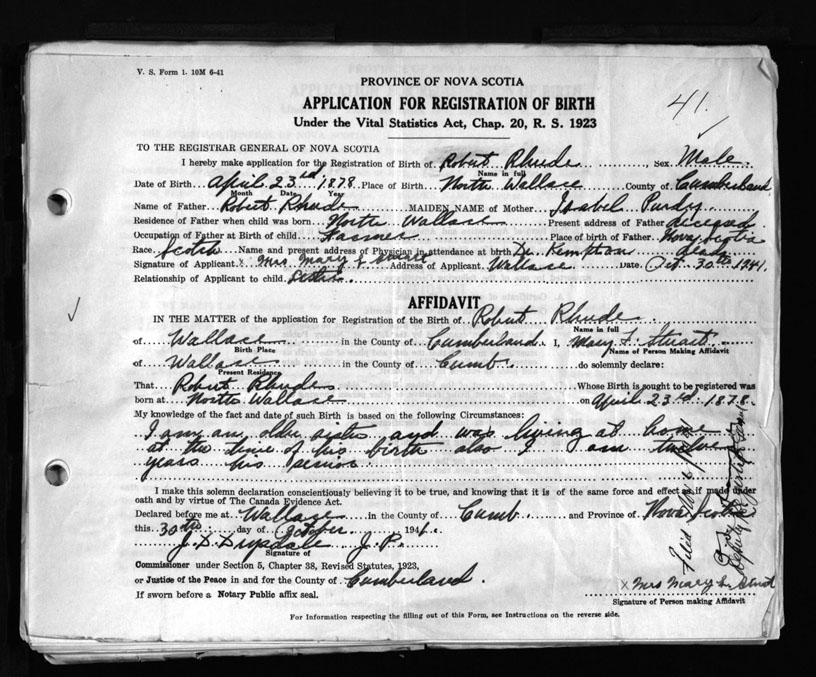 V. S. Form 1. 10M 6-41
PROVINCE OF NOVA SCOTIA
APPLICATION FOR REGISTRATION OF BIRTH
41.
Under the Vital Statistics Act, Chap. 20, R. S. 1923
TO THE REGISTRAR GENERAL OF NOVA SCOTIA
I hereby make application for the Registration of Birth of Robert Rhude, Sex Male
Name in full
Date of Birth April 23rd 1878 Place of Birth North Wallace County of Cumberland
Month Date Year
Name of Father Robert Rhude MAIDEN NAME of Mother Isabel Purdy
Residence of Father when child was born North Wallace Present address of Father deceased
Occupation of Father at Birth of child Farmer Place of birth of Father Nova Scotia
Race Scotch Name and present address of Physician in attendance at birth Dr Kempton dead
Signature of Applicant x Mrs. Mary L Stuart Address of Applicant Wallace Date Oct. 30th 1941.
Relationship of Applicant to child Sister.
AFFIDAVIT
IN THE MATTER of the application for Registration of the Birth of Robert Rhude
Name in full
of Wallace in the County of Cumberland I, Mary L. Stuart
Birth Place Name of Person Making Affidavit
of Wallace in the County of Cumb. do solemnly declare:
Present Residence
That Robert Rhude Whose Birth is sought to be registered was
born at North Wallace on April 23rd 1878.
My knowledge of the fact and date of such Birth is based on the following Circumstances:
I am an older sister and was living at home
at the time of his birth also I am twelve
years his senior
I make this solemn declaration conscientiously believing it to be true, and knowing that it is of the same force and effect as if made under
oath and by virtue of The Canada Evidence Act.
Declared before me at Wallace in the County of Cumb. and Province of Nova Scotia
this 30th day of October 1941.
J. D. Drysdale J. P.
Signature of
Commissioner under Section 5, Chapter 38, Revised Statutes, 1923,
or Justice of the Peace in and for the County of Cumberland.
If sworn before a Notary Public affix seal.
x Mrs Mary L. Stuart
Signature of Person making Affidavit
For Information respecting the filling out of this Form, see Instructions on the reverse side.
Filed
Deputy Registrar General